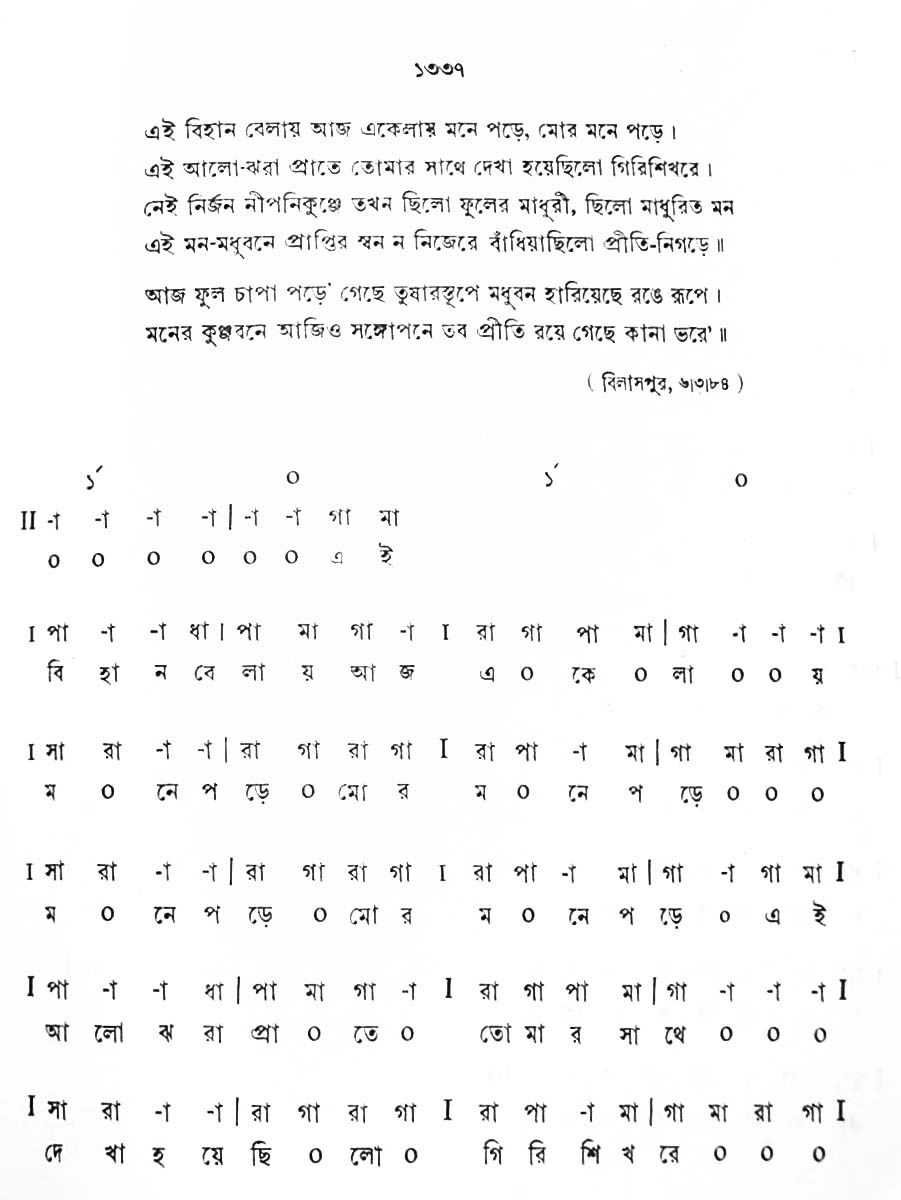 ১৩৩৭
এই বিহান বেলায় আজ একেলায় মনে পড়ে, মোর মনে পড়ে।
এই আলো-ঝরা প্রাতে তোমার সাথে দেখা হয়েছিলো গিরিশিখরে।
নেই নির্জন নীপনিকুঞ্জে তখন ছিলো ফুলের মাধুরী, ছিলো মাধুরিত মন
এই মন-মধুবনে প্রাপ্তির স্বন ন নিজেরে বাঁধিয়াছিলো প্রীতি-নিগড়ে॥
আজ ফুল চাপা পড়ে' গেছে তুষারস্তূপে মধুবন হারিয়েছে রঙে রূপে।
মনের কুঞ্জবনে আজিও সঙ্গোপনে তব প্রীতি রয়ে গেছে কানা ভরে'॥
( বিলাসপুর, ৬।৩।৮৪ )
১´ ০ ১´ ০
II -া -া -া -া | -া -া গা মা
০ ০ ০ ০ ০ ০ এ ই
I পা -া -া ধা | পা মা গা -া I রা গা পা মা | গা -া -া -া I
বি হা ন বে লা য় আ জ এ ০ কে ০ লা ০ ০ য়
I সা রা -া -া | রা গা রা গা I রা পা -া মা | গা মা রা গা I
ম ০ নে প ড়ে ০ মো র ম ০ নে প ড়ে ০ ০ ০
I সা রা -া -া | রা গা রা গা I রা পা -া মা | গা -া গা মা I
ম ০ নে প ড়ে ০ মো র ম ০ নে প ড়ে ০ এ ই
I পা -া -া ধা | পা মা গা -া I রা গা পা মা | গা -া -া -া I
আ লো ঝ রা প্রা ০ তে ০ তো মা র সা থে ০ ০ ০
I সা রা -া -া | রা গা রা গা I রা পা -া মা | গা মা রা গা I
দে খা হ য়ে ছি ০ লো ০ গি রি শি খ রে ০ ০ ০